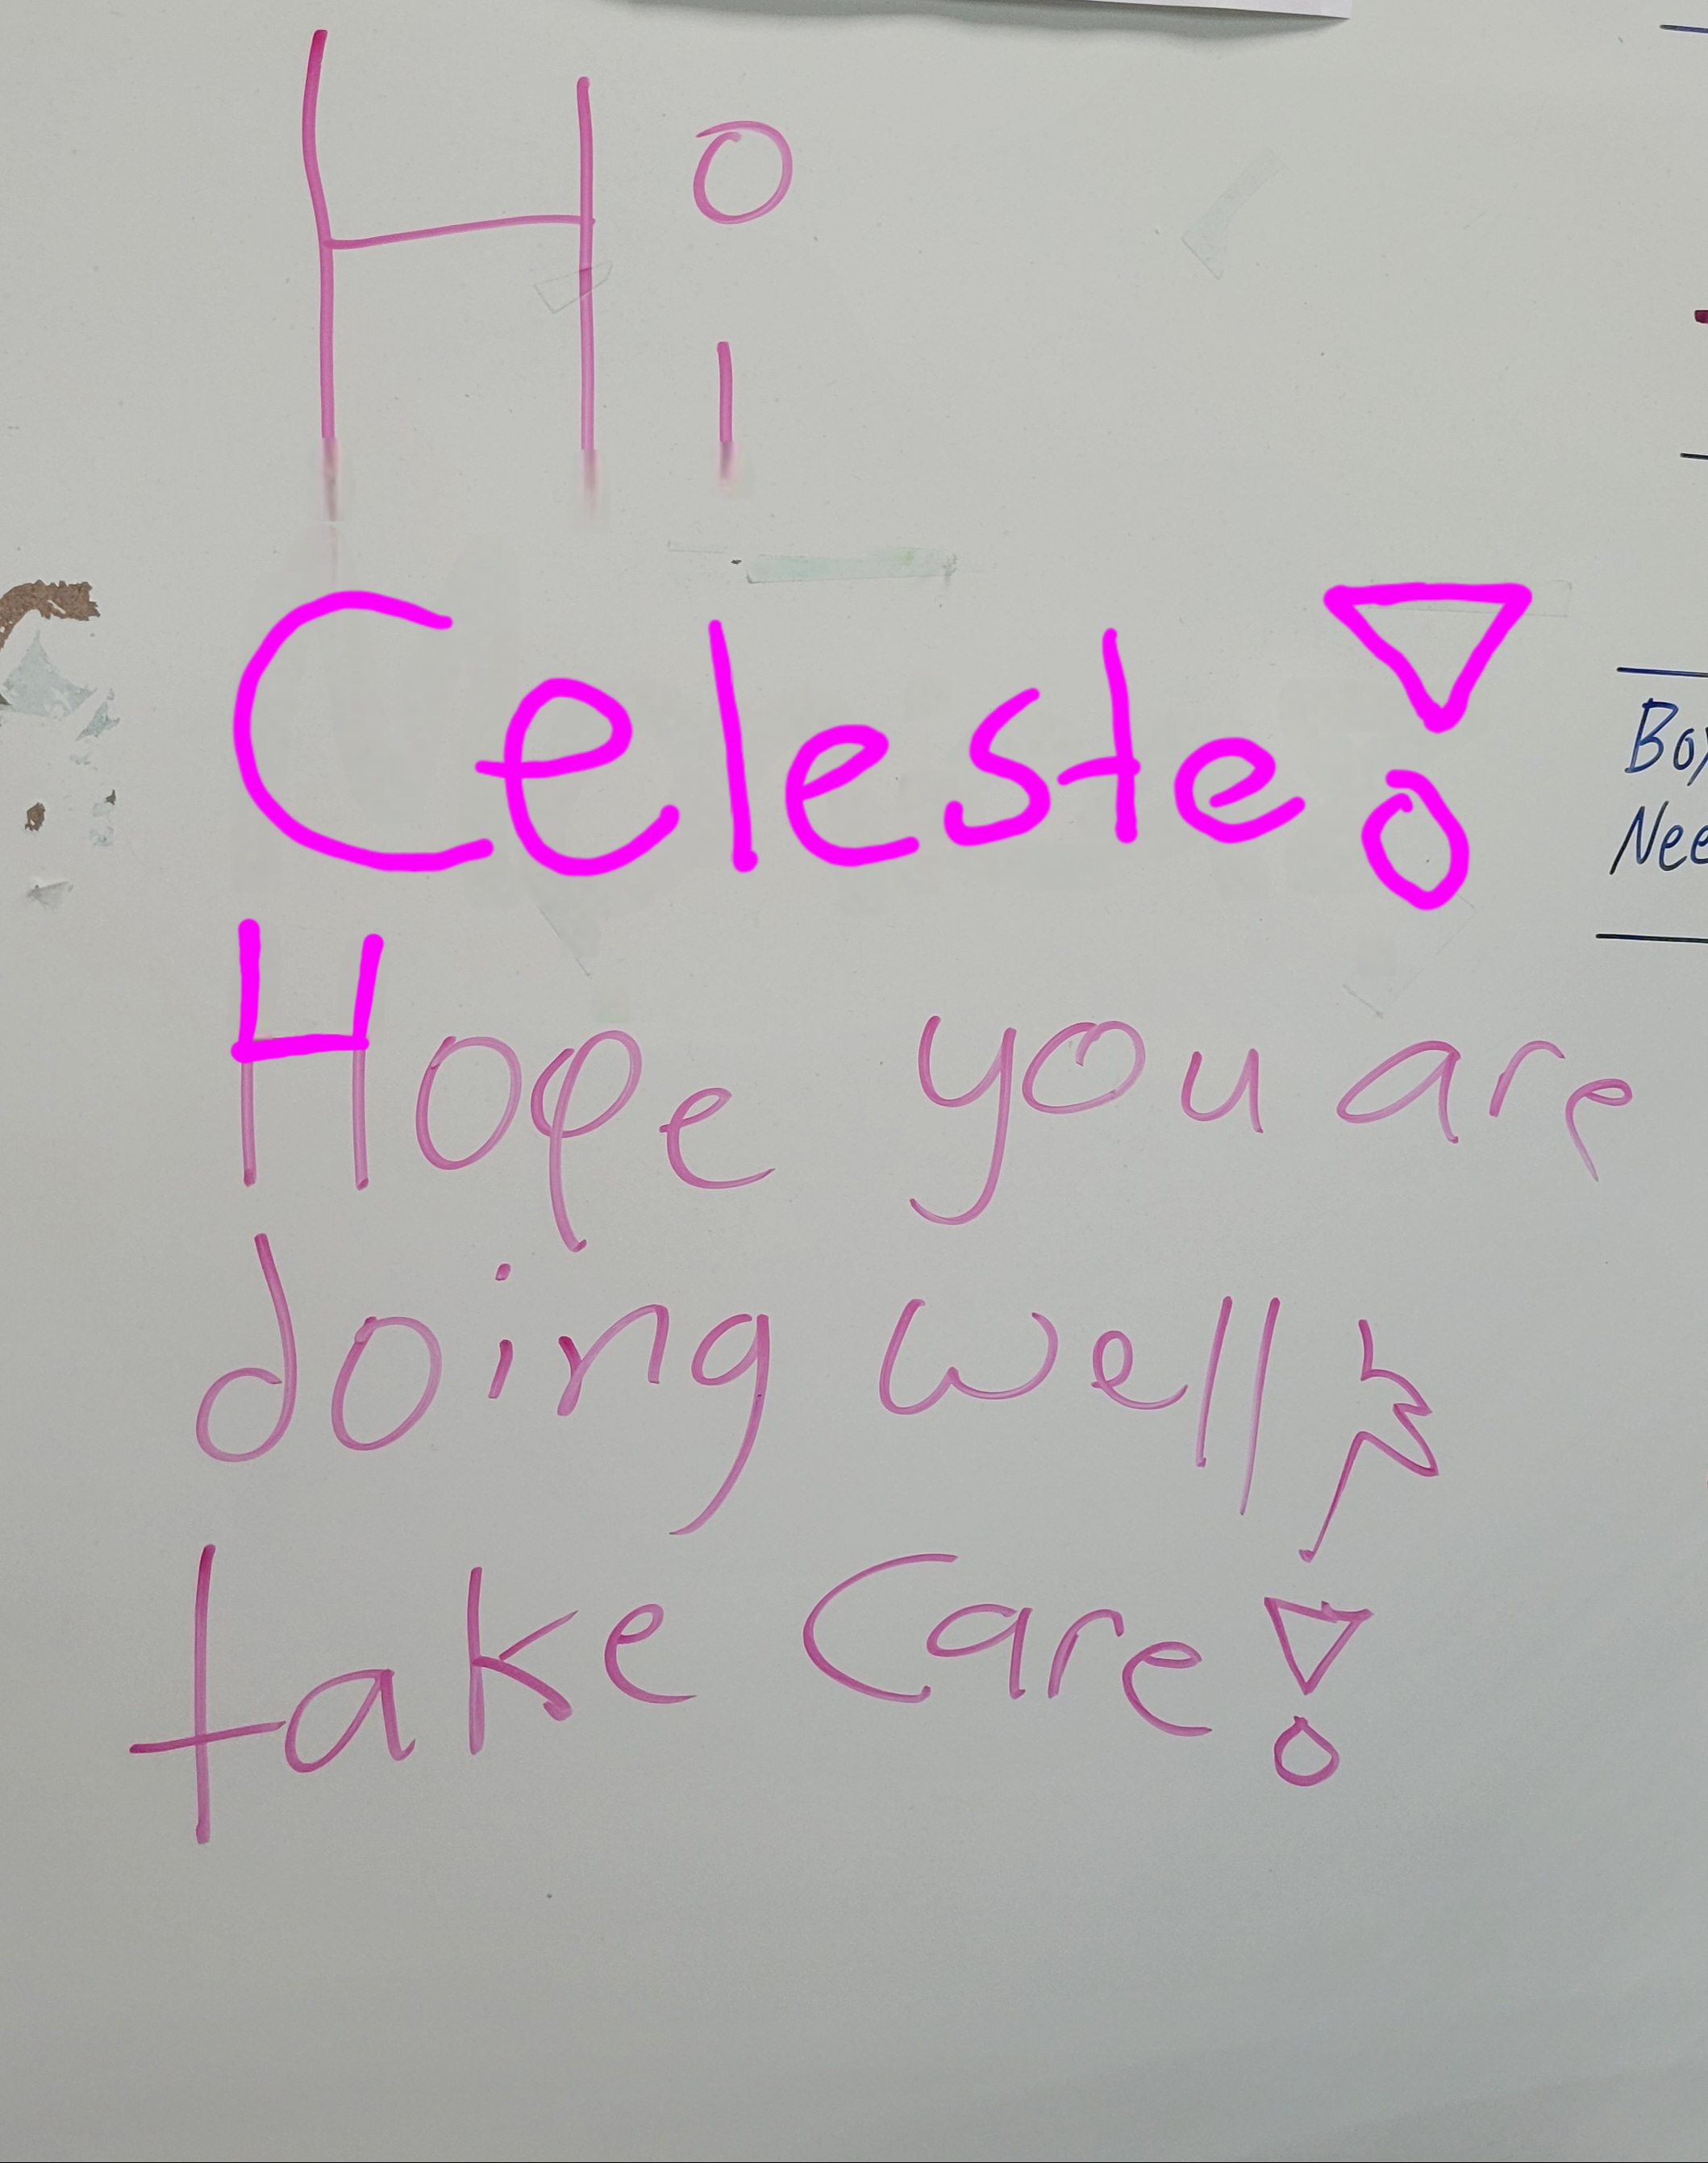 Hi
Celeste!
Hope you are
doing well &
take care!
Box
Nee